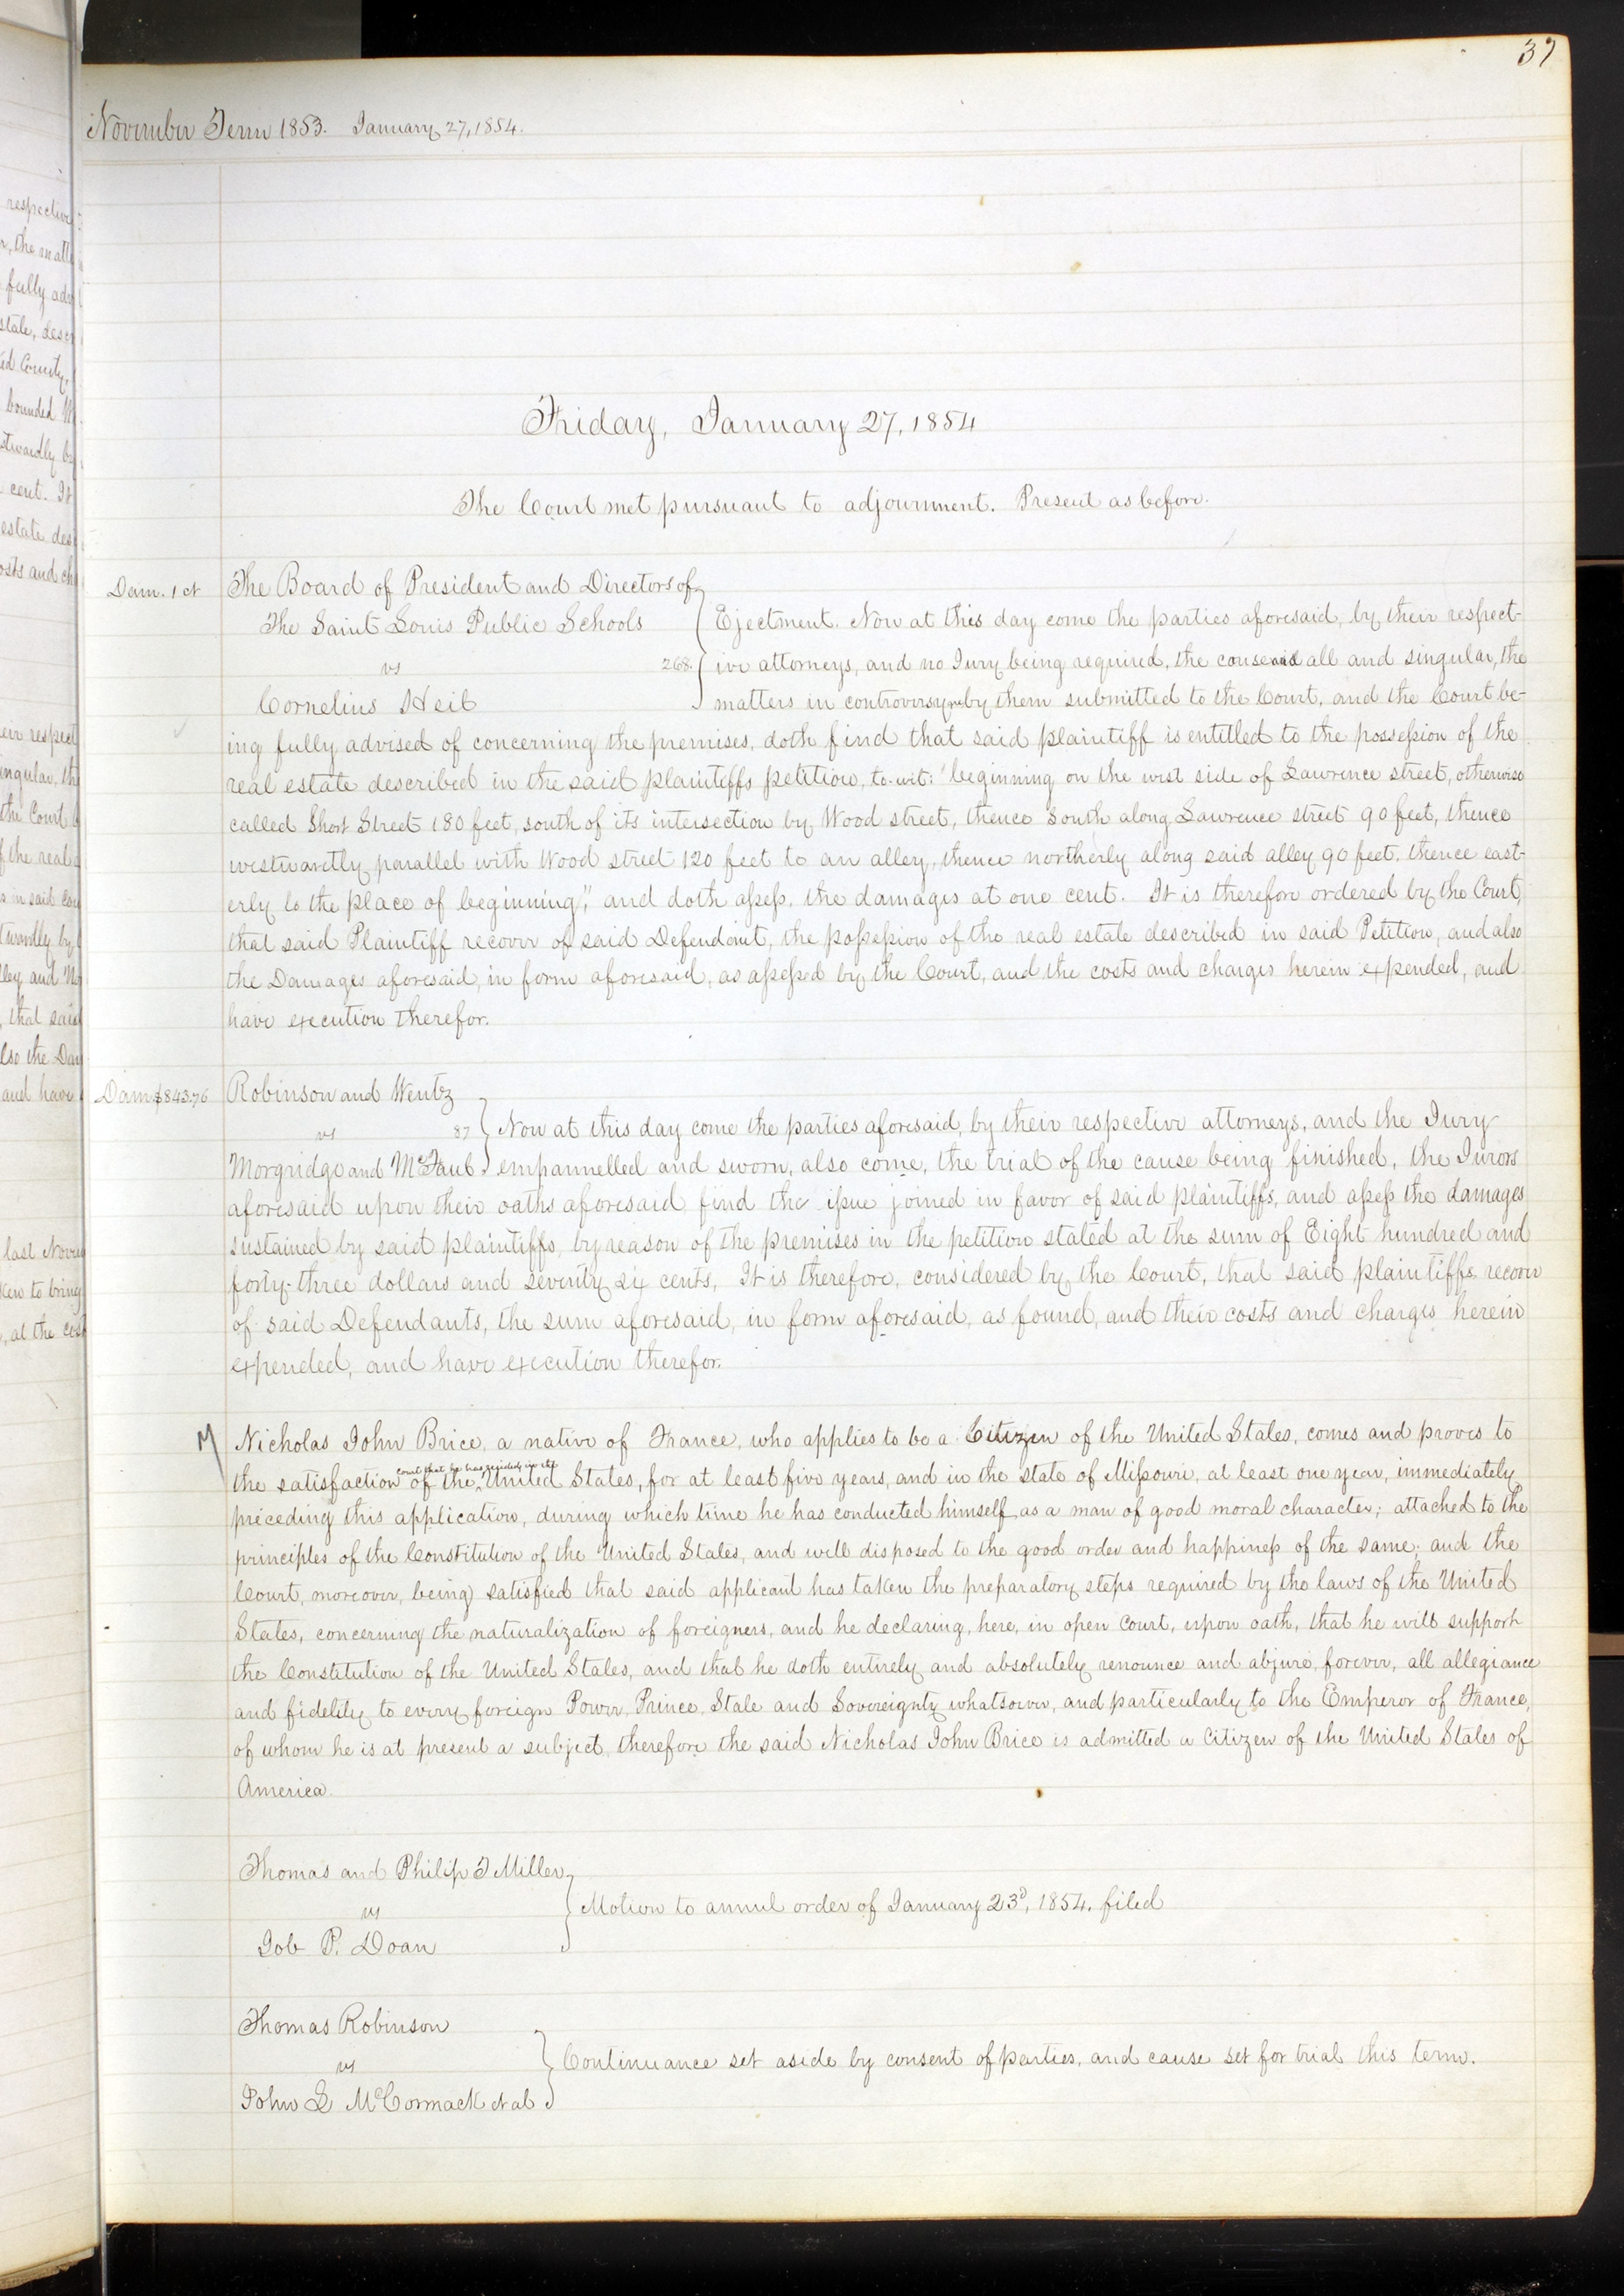 37
November Term 1853. January 27, 1854.
respective
r, the matt
fully adv
state, desc
ed County,
bounded W
stwardly by
cent. It
estate des
osts and ch
eir respect
ingular, th
the Court b
f the real
s in said Cou
twardly by
lley and No
, that said
lso the Dam
and have
last Nove
ken to bring
, at the cost
Friday, January 27, 1854
The Court met pursuant to adjournment. Present as before.
Dam. 1 ct
The Board of President and Directors of
The Saint Louis Public Schools
vs 268.
Cornelius Heil
Ejectment. Now at this day come the parties aforesaid, by their respect-
ive attorneys, and no Jury being required, the cause and all and singular, the
matters in controversy are by them submitted to the Court, and the Court be-
ing fully advised of concerning the premises, doth find that said plaintiff is entitled to the possession of the
real estate described in the said plaintiffs petition, to-wit: "beginning on the west side of Lawrence street, otherwise
called Short Street 180 feet, south of its intersection by Wood street, thence south along Lawrence street 90 feet, thence
westwardly parallel with Wood street 120 feet to an alley, thence northerly along said alley 90 feet, thence east-
erly to the place of beginning", and doth assess, the damages at one cent. It is therefore ordered by the Court,
that said Plaintiff recover of said Defendant, the possession of the real estate described in said Petition, and also
the Damages aforesaid, in form aforesaid, as assessed by the Court, and the costs and charges herein expended, and
have execution therefor.
Dam $843.76
Robinson and Wentz
vs 87
Morgridge and McFaul
Now at this day come the parties aforesaid, by their respective attorneys, and the Jury
empannelled and sworn, also come, the trial of the cause being finished, the Jurors
aforesaid upon their oaths aforesaid find the issue joined in favor of said plaintiffs, and assess the damages
sustained by said plaintiffs, by reason of the premises in the petition stated at the sum of Eight hundred and
forty-three dollars and seventy six cents, It is therefore, considered by the Court, that said plaintiffs, recover
of said Defendants, the sum aforesaid, in form aforesaid, as found, and their costs and charges herein
expended, and have execution therefor.
M
Nicholas John Brice, a native of France, who applies to be a Citizen of the United States, comes and proves to
court that he has resided in the
the satisfaction of the United States, for at least five years, and in the state of Missouri, at least one year, immediately
preceding this application, during which time he has conducted himself as a man of good moral character; attached to the
principles of the Constitution of the United States, and well disposed to the good order and happiness of the same; and the
Court, moreover, being satisfied that said applicant has taken the preparatory steps required by the laws of the United
States, concerning the naturalization of foreigners, and he declaring, here, in open Court, upon oath, that he will support
the Constitution of the United States, and that he doth entirely and absolutely renounce and abjure, forever, all allegiance
and fidelity to every foreign Power, Prince, State and Sovereignty whatsoever, and particularly to the Emperor of France,
of whom he is at present a subject, therefore the said Nicholas John Brice is admitted a Citizen of the United States of
America.
Thomas and Philip T Miller
vs
Job P. Doan
Motion to annul order of January 23d, 1854, filed
Thomas Robinson
vs
John L McCormack et al
Continuance set aside by consent of parties, and cause set for trial this term.